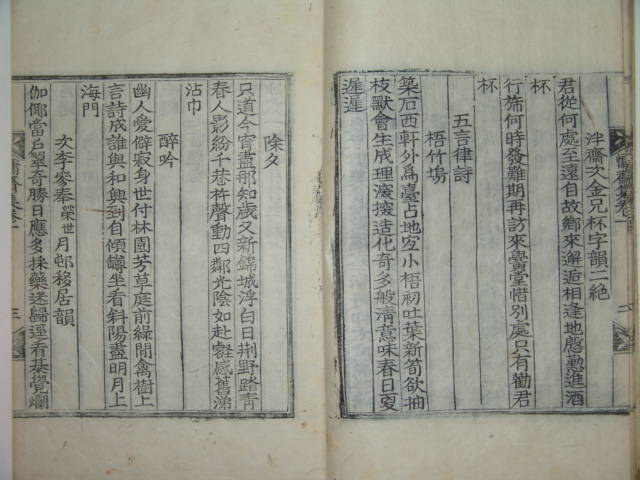 泮齋次金兄杯字韻二絶
君從何處至遠自故鄉來邂逅相逢地慇懃進酒
杯
行旆何時發難期再訪來黌堂惜別處只有勸君
杯
五言律詩
梧竹塢
築石西軒外爲臺占地宏小梧初吐葉新筍欲抽
枝默會生成理深摸造化奇多般淸意味春日夏
遲遲
除夕
只道今宵盡那知歲又新錦城浮白日荆野踏靑
春人影紛千巷杵聲動四鄰光陰如赴壑感舊涕
沾巾
醉吟
幽人愛僻寂身世付林園芳草庭前綠閒禽樹上
言詩成誰與和興到自傾罇坐看斜陽盡明月上
海門
次李參奉榮世月邨移居韻
伽倻當戶翠奇勝日應多採藥迷歸逕看棊覺爛